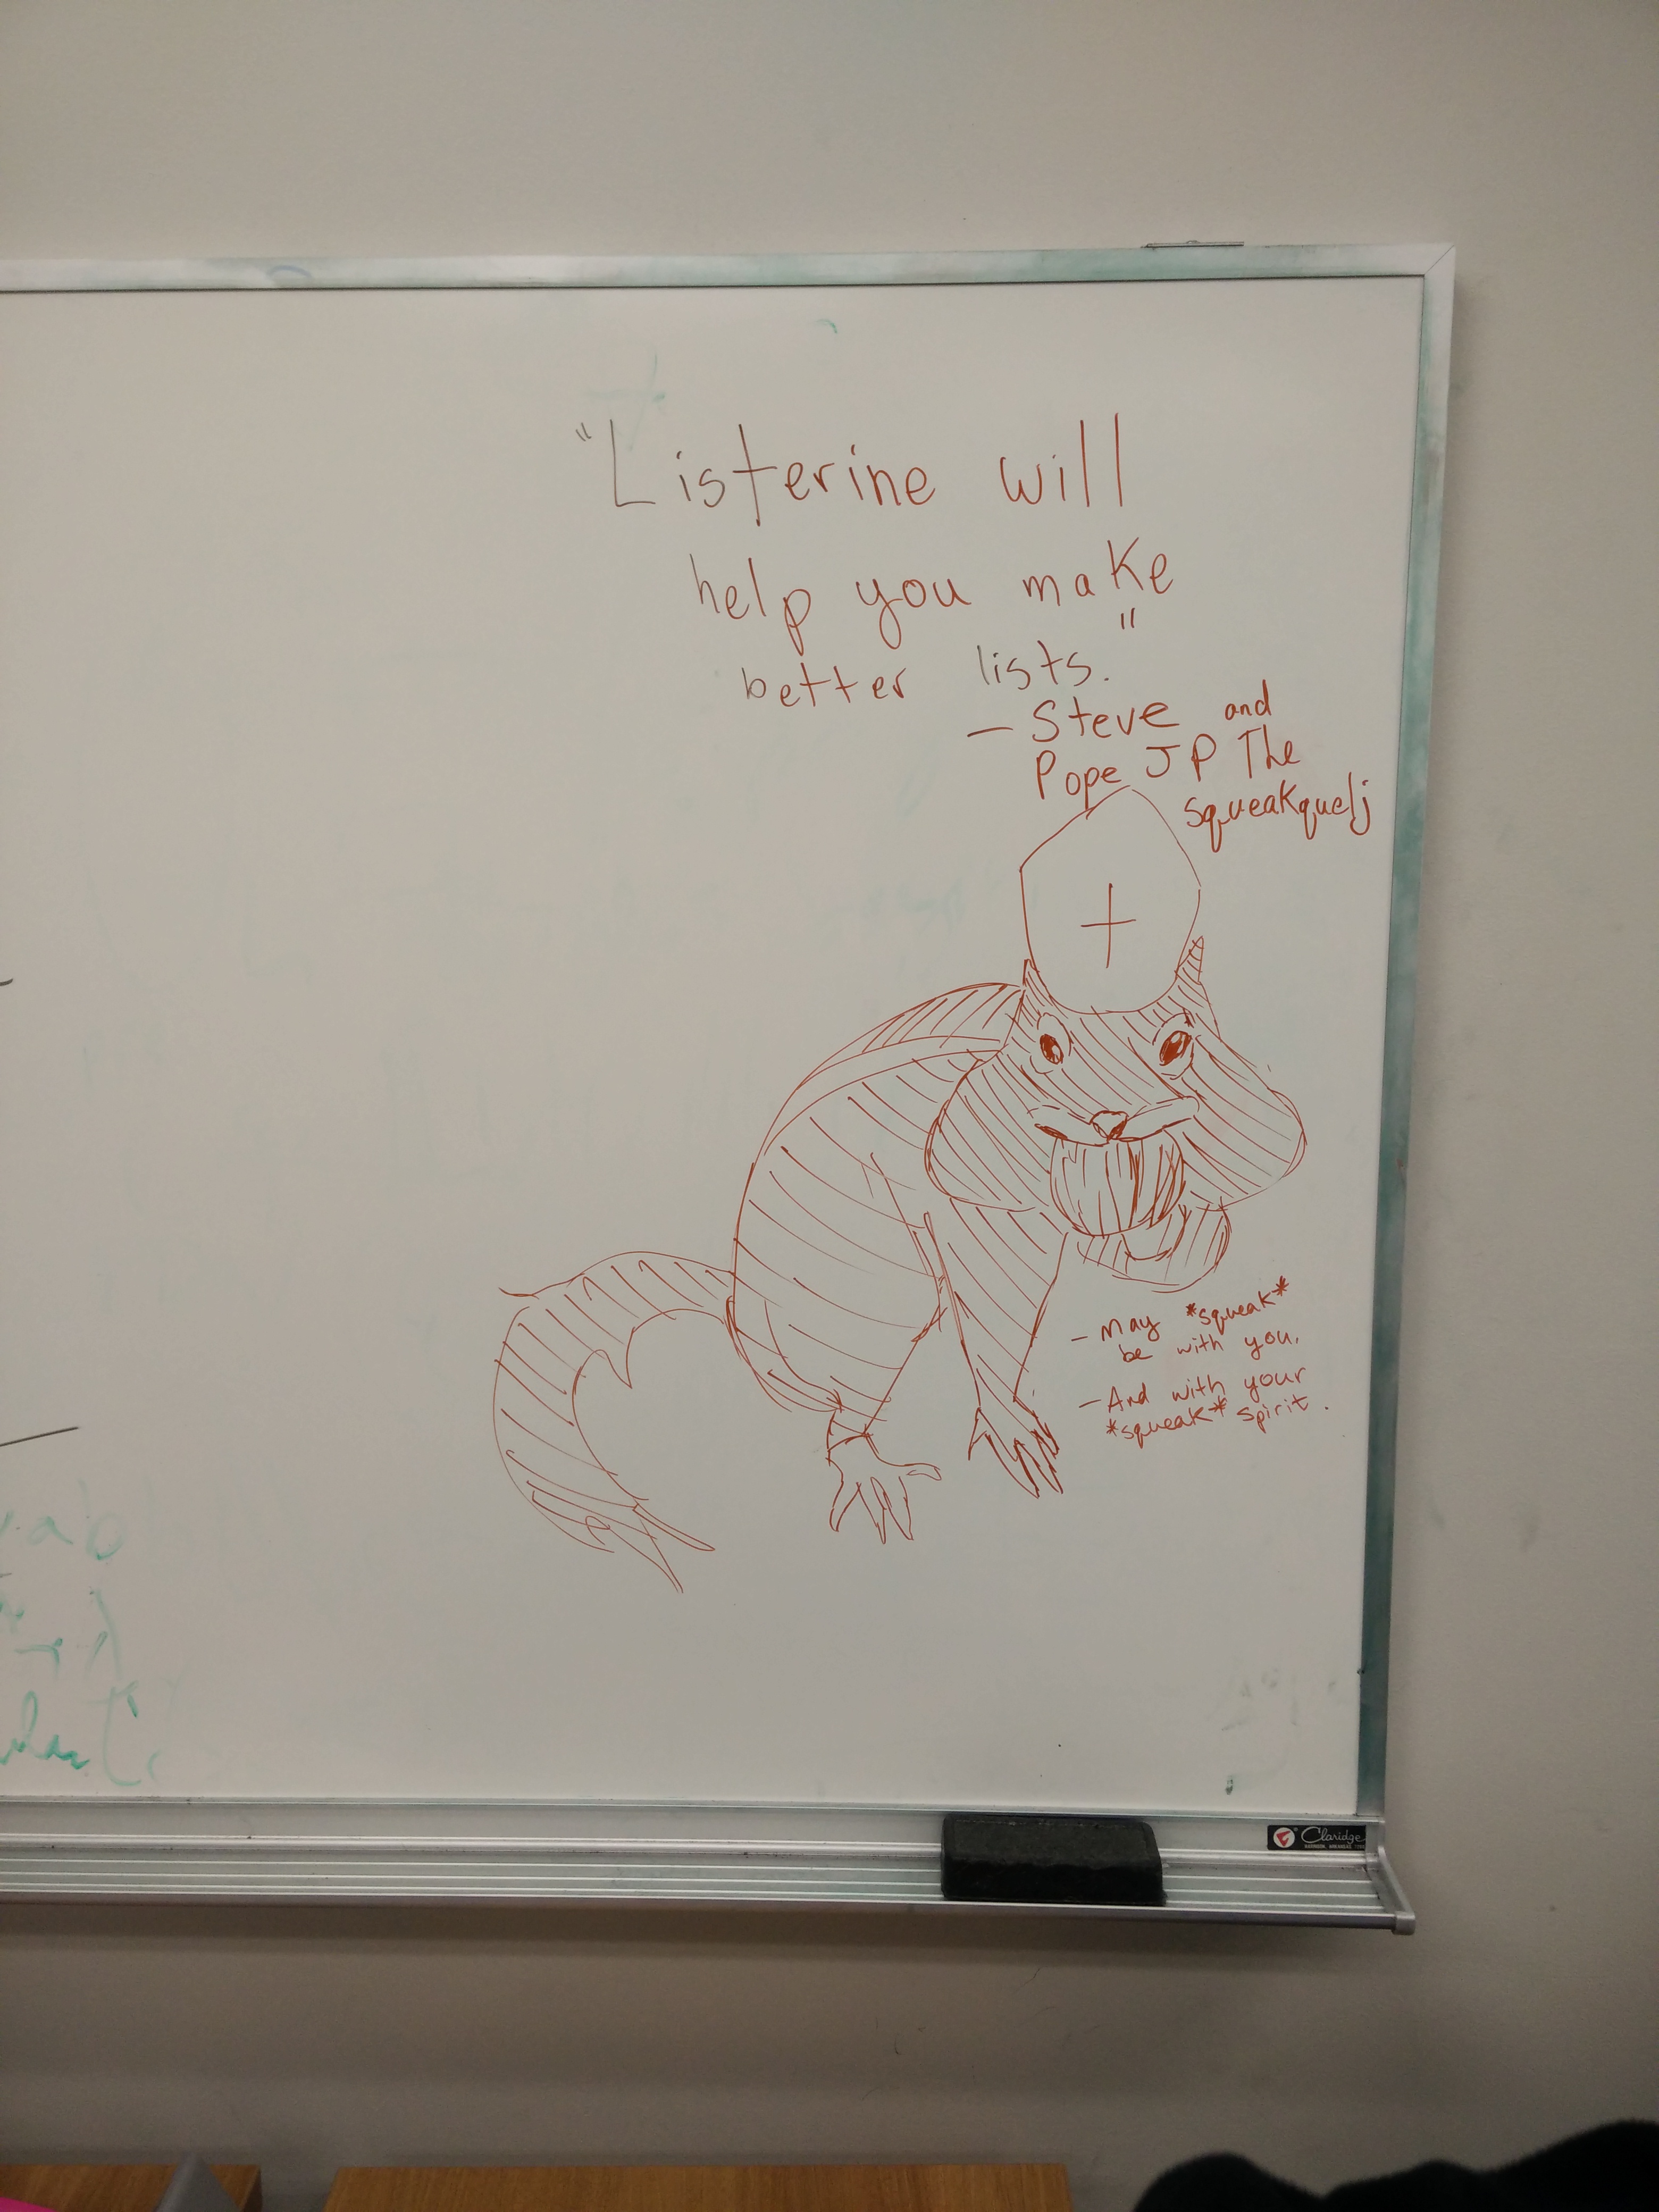 "Listerine will
help you make
better lists."
— Steve and
Pope JP The
Squeakquelj
- May *squeak*
be with you.
- And with your
*squeak* spirit.
Claridge